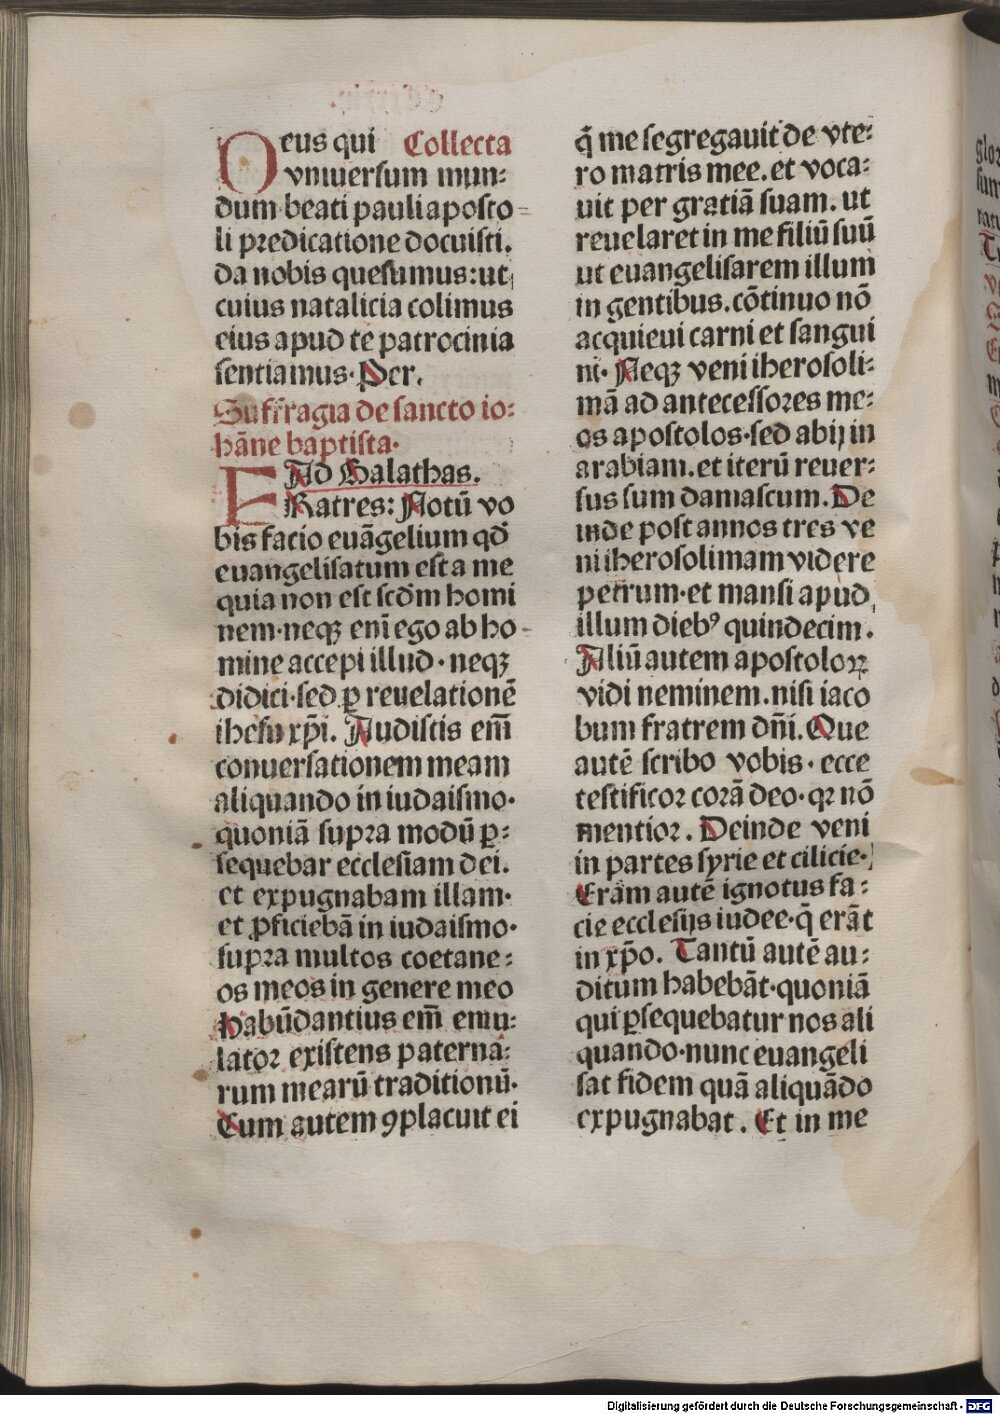 Oeus qui Collecta
vniuersum mun:
dum beati pauli aposto=
li predicatione docuisti.
da nobis quesumus: ut
cuius natalicia colimus
eius apud te patrocinia
sentiamus· Per.
Suffragia de sancto io:
hāne baptista·
Ad Galathas.
FRatres: Notū vo
bis facio euāgelium qđ
euangelisatum est a me
quia non est scđm homi
nem·neqꝫ eni ego ab ho=
mine accepi illud· neqꝫ
didici·sed ꝑ reuelationē
ihesu xp̄i. Audistis em̄
conuersationem meam
aliquando in iudaismo·
quoniā supra modū ꝑ:
sequebar ecclesiam dei.
et expugnabam illam·
et ꝓficiebā in iudaismo·
supra multos coetane:
os meos in genere meo
Habūdantius em̄ emu:
lator existens paterna:
rum mearū traditionū·
Cum autem ꝯplacuit ei
q̄ me segregauit de vte:
ro matris mee.et voca:
uit per gratiā suam. ut
reuelaret in me filiū suū
ut euangelisarem illum
in gentibus.cōtinuo nō
acquieui carni et sangui
ni· Neqꝫ veni iherosoli:
mā ad antecessores me:
os apostolos·sed abij in
arabiam.et iterū reuer:
sus sum damascum. De
inde post annos tres ve
ni iherosolimam videre
petrum·et mansi apud
illum diebꝰ quindecim.
Aliū autem apostoloꝝ
vidi neminem.nisi iaco
bum fratrem dn̄i. Que
autē scribo vobis· ecce
testificor corā deo·qꝛ nō
mentior. Deinde veni
in partes syrie et cilicie·
Eram autē ignotus fa:
cie ecclesijs iudee·q̄ erāt
in xp̄o. Tantū autē au:
ditum habebāt·quoniā
qui ꝑsequebatur nos ali
quando·nunc euangeli
sat fidem quā aliquādo
expugnabat. Et in me
Digitalisierung gefördert durch die Deutsche Forschungsgemeinschaft - DFG